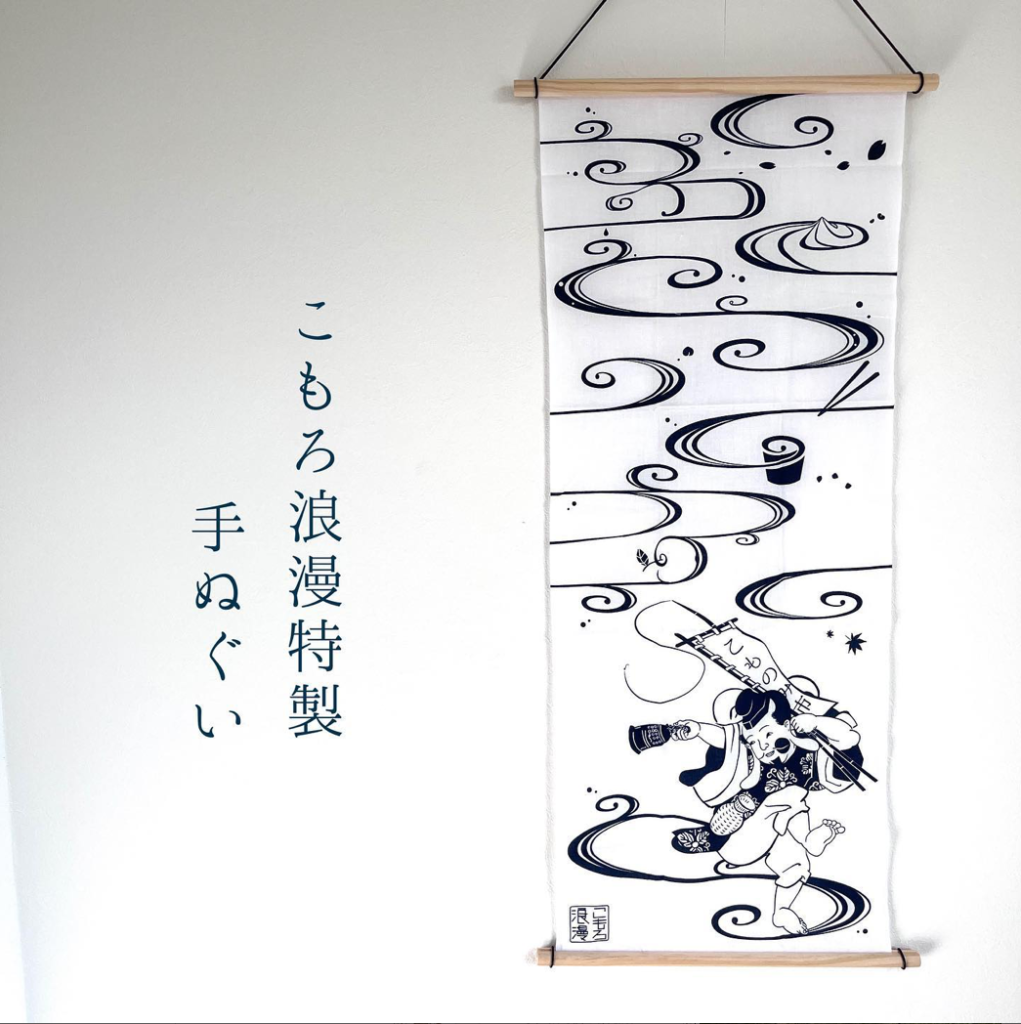 こもろ浪漫特製
手ぬぐい
こもろ
浪漫